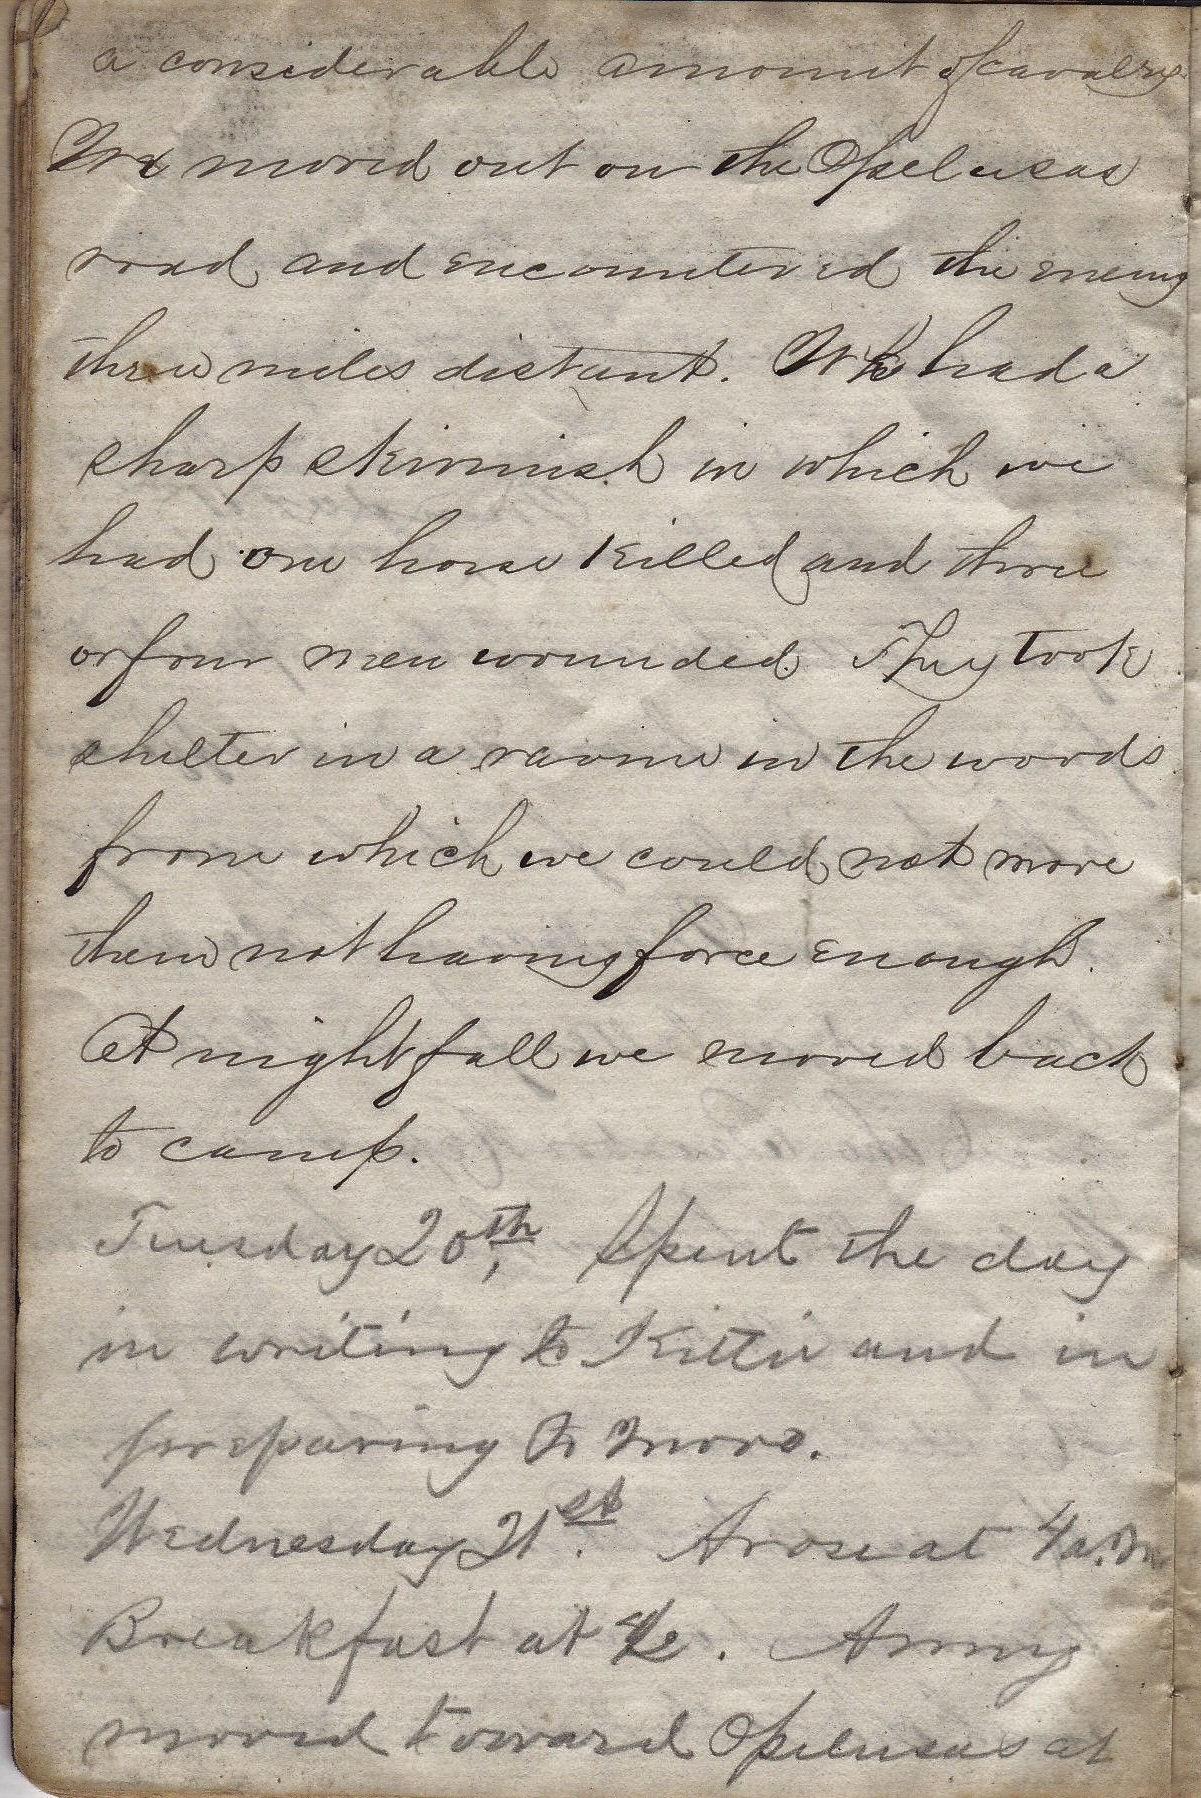 a considerable amount of cavalry
We moved out on the Opelusas
road and encountered the enemy
three miles distant. We had a
sharp skirmish in which we
had one horse killed and three
or four men wounded. They took
shelter in a ravine in the woods
from which we could not move
them not having force enough.
At nightfall we moved back
to camp.
Tuesday 20th, Spent the day
in writing to Kittie and in
preparing to move.
Wednesday 21st. Arose at 4 a.m
Breakfast at . Army
moved toward Opelusas at